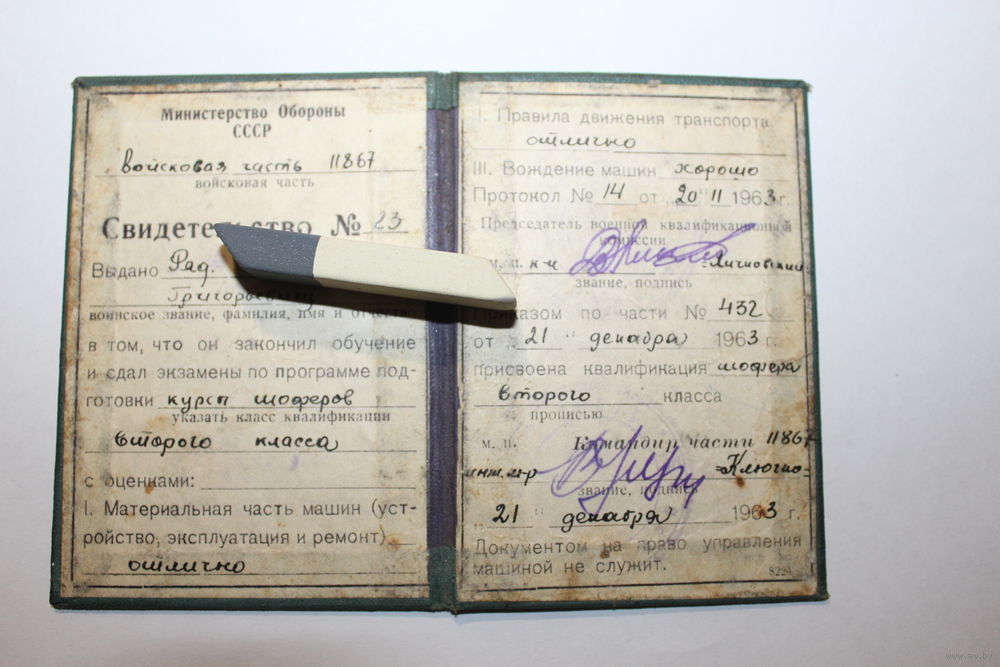 Министерство Обороны
СССР
войсковая часть 11867
войсковая часть
Свидетельство № 23
Выдано Ряд.
Григорьевичу
воинское звание, фамилия, имя и отчество
в том, что он закончил обучение
и сдал экзамены по программе под-
готовки курсы шоферов
указать класс квалификации
второго класса
с оценками:
I. Материальная часть машин (уст-
ройство, эксплуатация и ремонт)
отлично
II. Правила движения транспорта
отлично
III. Вождение машин хорошо
Протокол № 14 от „20" 11 1963 г.
Председатель военной квалификационной
комиссии
м. п. к-н
звание, подпись
Приказом по части № 432
от „21" декабря 1963 г.
присвоена квалификация шофера
второго класса
прописью
м. п. Командир части 11867
инж. м-р
звание, подпись
„21" декабря 1963 г.
Документом на право управления
машиной не служит.
www.ay.by